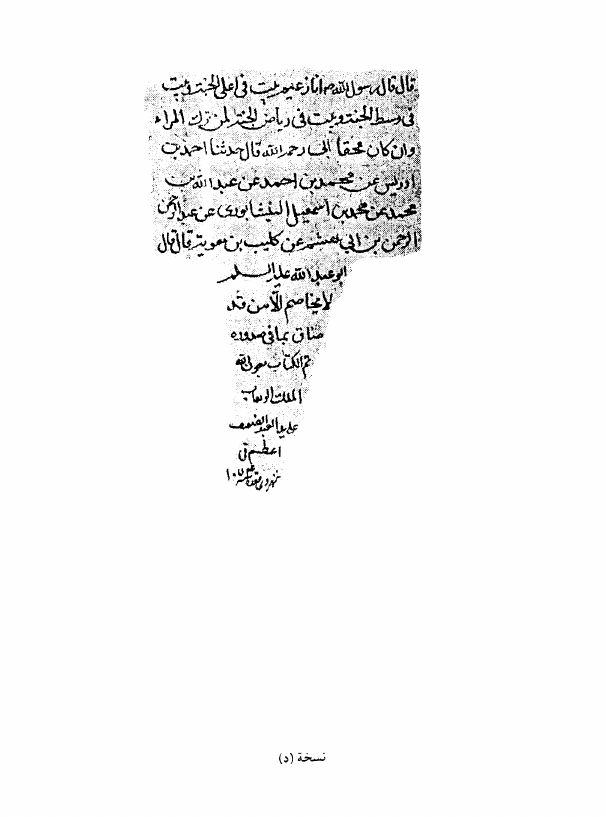 قال قال رسول الله ص انا زعيم ببيت في اعلى الجنة وبيت
في وسط الجنة وبيت في رياض الجنة لمن ترك المراء
وان كان محقا ابي رحمه الله قال حدثنا احمد بن
ادريس عن محمد بن احمد عن عبد الله بن
محمد عن محمد بن اسمعيل النيشابوري عن عبد الرحمن
الرحمن بن ابي هشم عن كليب بن معوية قال قال
ابو عبد الله عليه السلم
لا يخاصم الا من قد
ضاق بما في صدره
تم الكتاب بعون الله
الملك الوهاب
العبد الضعيف
في
شهر ذي قعده سنه ١٠٧
نسخة (د)